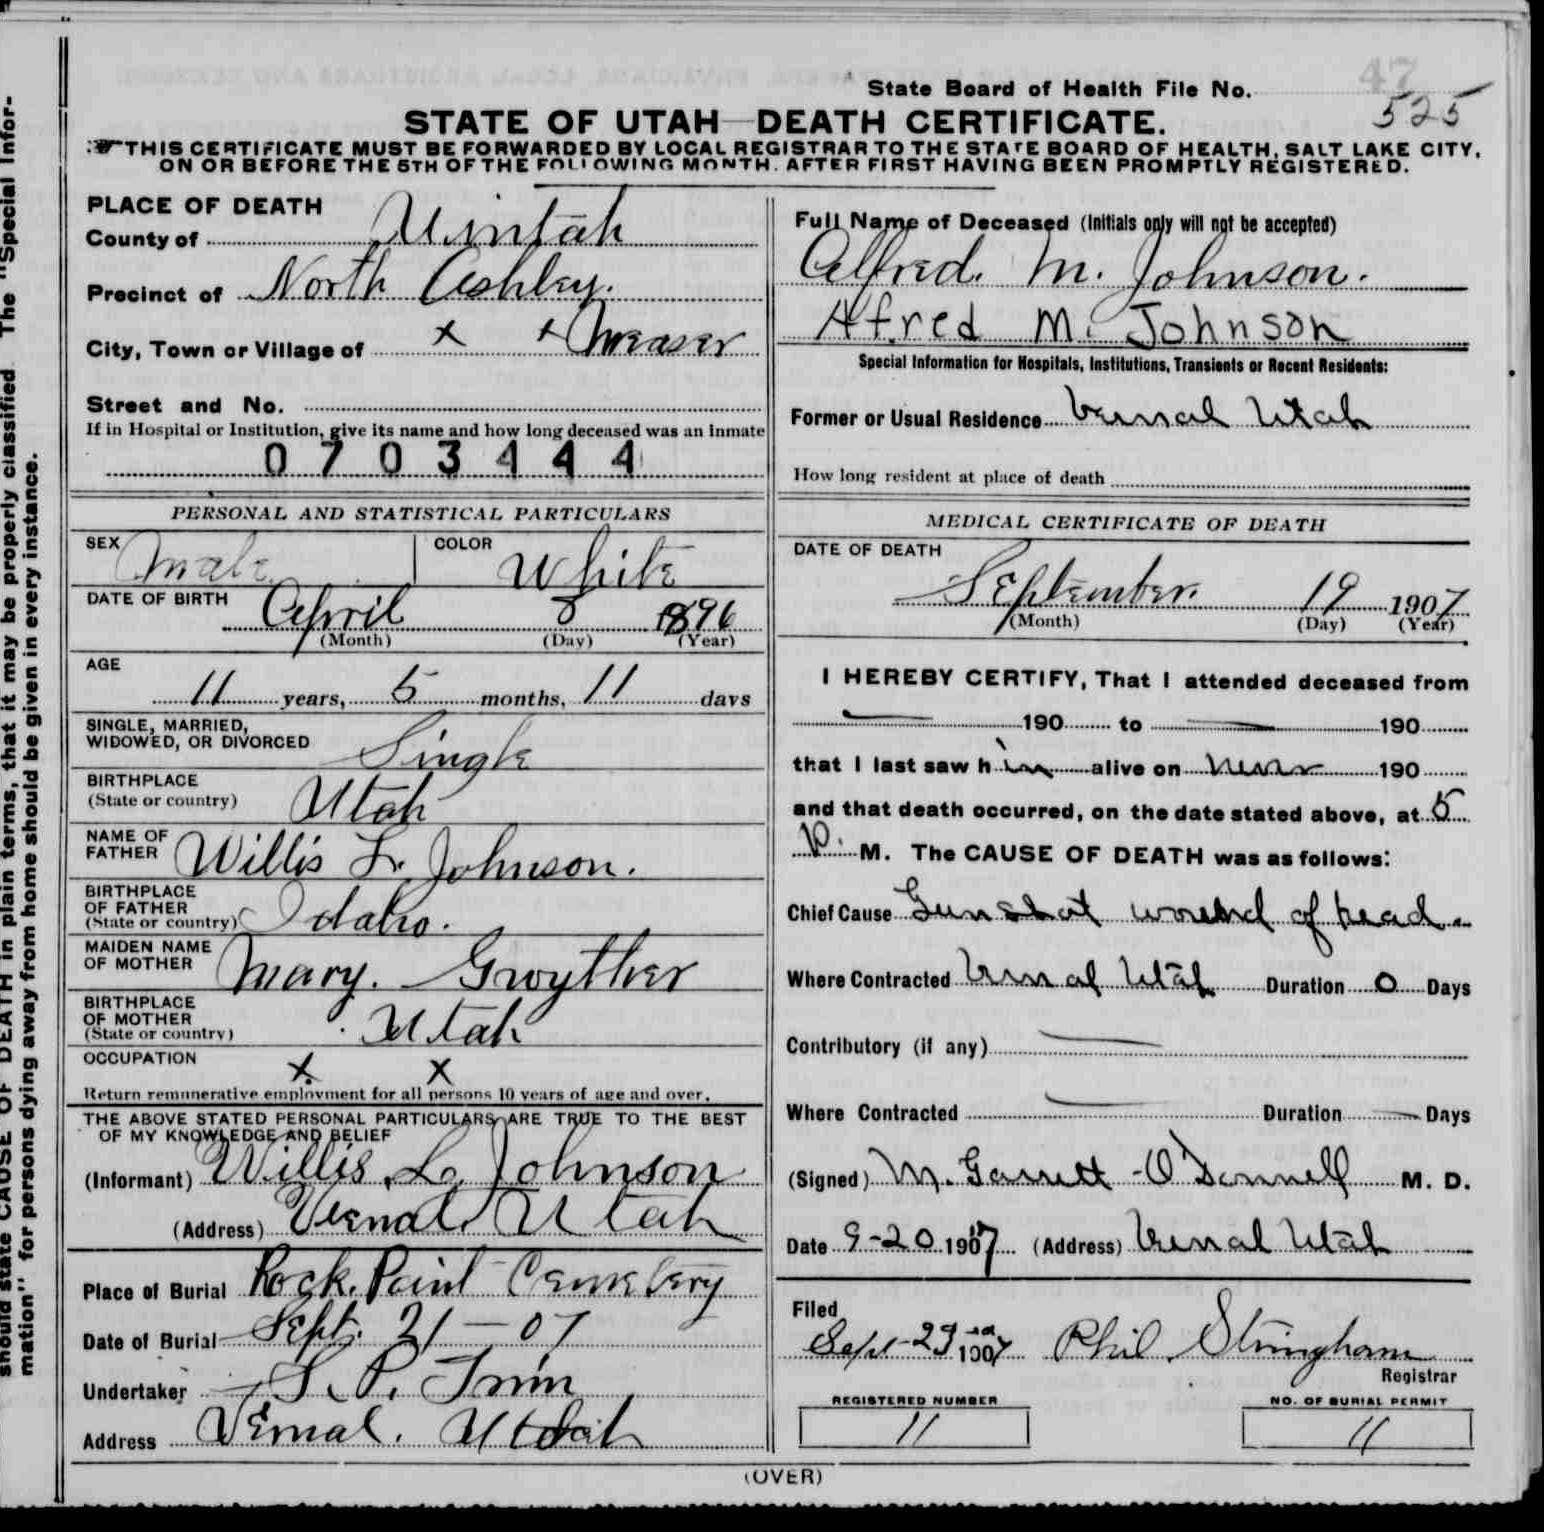 47
State Board of Health File No. 525
STATE OF UTAH—DEATH CERTIFICATE.
THIS CERTIFICATE MUST BE FORWARDED BY LOCAL REGISTRAR TO THE STATE BOARD OF HEALTH, SALT LAKE CITY,
ON OR BEFORE THE 5TH OF THE FOLLOWING MONTH. AFTER FIRST HAVING BEEN PROMPTLY REGISTERED.
PLACE OF DEATH
County of Uintah
Precinct of North Ashley.
City, Town or Village of x x Measer
Street and No.
If in Hospital or Institution, give its name and how long deceased was an inmate
0703444
PERSONAL AND STATISTICAL PARTICULARS
SEX Male COLOR White
DATE OF BIRTH April 8 1896
(Month) (Day) (Year)
AGE
11 years, 5 months, 11 days
SINGLE, MARRIED,
WIDOWED, OR DIVORCED Single
BIRTHPLACE
(State or country) Utah
NAME OF
FATHER Willis L. Johnson.
BIRTHPLACE
OF FATHER
(State or country) Idaho.
MAIDEN NAME
OF MOTHER Mary. Gwyther
BIRTHPLACE
OF MOTHER
(State or country) Utah
OCCUPATION x x
Return remunerative employment for all persons 10 years of age and over.
THE ABOVE STATED PERSONAL PARTICULARS ARE TRUE TO THE BEST
OF MY KNOWLEDGE AND BELIEF
(Informant) Willis L. Johnson
(Address) Vernal. Utah
Place of Burial Rock. Point Cemetery
Date of Burial Sept. 21 - 07
Undertaker S. P. Trim
Address Vernal. Utah
Full Name of Deceased (Initials only will not be accepted)
Alfred. M. Johnson.
Alfred M. Johnson
Special Information for Hospitals, Institutions, Transients or Recent Residents:
Former or Usual Residence Vernal Utah
How long resident at place of death
MEDICAL CERTIFICATE OF DEATH
DATE OF DEATH
September. 19 1907
(Month) (Day) (Year)
I HEREBY CERTIFY, That I attended deceased from
— 190 to — 190
that I last saw h im alive on never 190
and that death occurred, on the date stated above, at 5
P. M. The CAUSE OF DEATH was as follows:
Chief Cause Gunshot wound of head.
Where Contracted Vernal Utah Duration 0 Days
Contributory (if any) —
Where Contracted — Duration — Days
(Signed) M. Garrett O'Donnell M. D.
Date 9-20 1907 (Address) Vernal Utah
Filed
Sept-23rd 1907 Phil Stringham
Registrar
REGISTERED NUMBER
11
NO. OF BURIAL PERMIT
11
(OVER)
should state CAUSE OF DEATH in plain terms, that it may be properly classified. The "Special Infor-
mation" for persons dying away from home should be given in every instance.